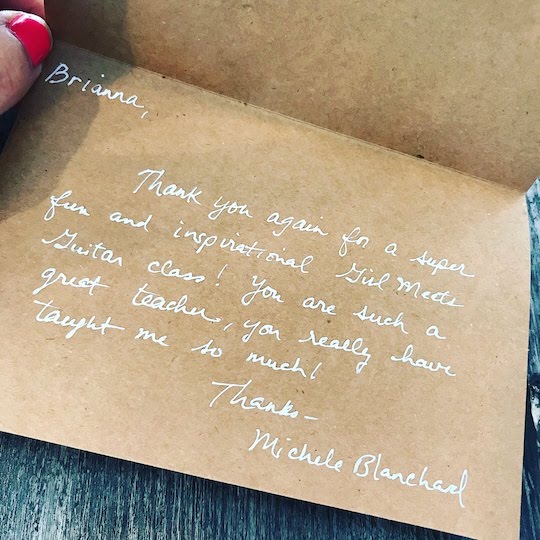 Brianna,
Thank you again for a super
fun and inspirational Girl Meets
Guitar class! You are such a
great teacher, you really have
taught me so much!
Thanks-
Michele Blanchard